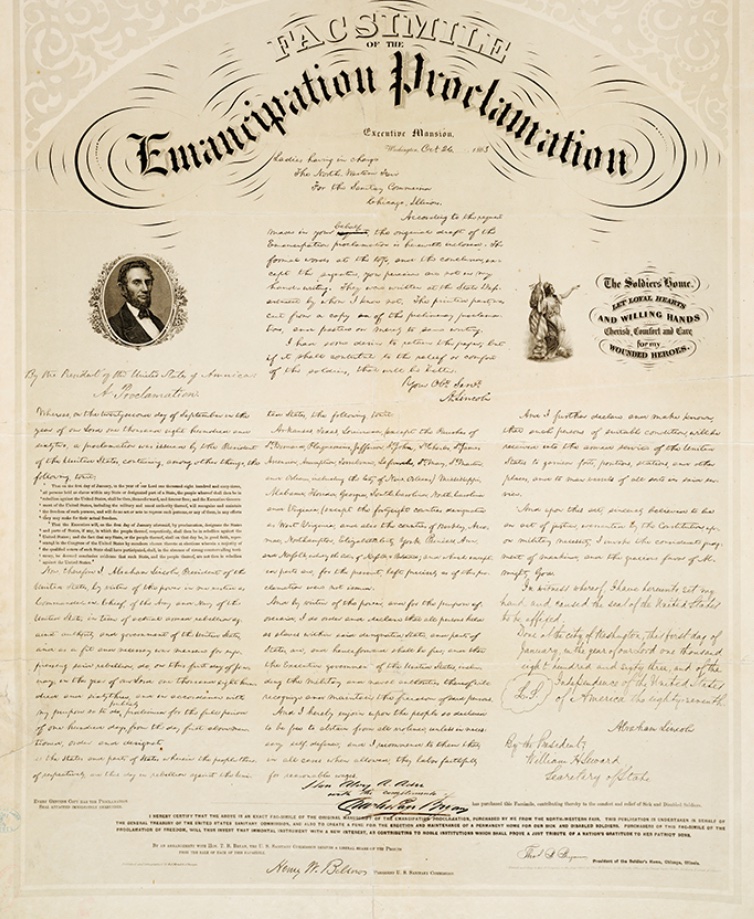 FACSIMILE
OF THE
Emancipation Proclamation
Executive Mansion,
Washington, Oct 26, 1863
Ladies having in charge
The North-Western Fair
For the Sanitary Commission
Chicago, Illinois.
According to the request
made in your behalf, the original draft of the
Emancipation proclamation is herewith inclosed. The
formal words at the top, and the conclusion, ex-
cept the signature, you perceive are not in my
handwriting. They were written at the State Dep-
artment by whom I know not. The printed part was
cut from a copy of the preliminary proclama-
tion, and pasted on merely to save writing.
I have some desire to retain the paper; but
if it shall contribute to the relief or comfort
of the soldiers, that will be better.
Your Obt. Servt.
A. Lincoln
The Soldiers Home.
LET LOYAL HEARTS
AND WILLING HANDS
Cherish, Comfort and Care
for my
WOUNDED HEROES.
By the President of the United States of America:
A Proclamation.
Whereas, on the twentysecond day of September, in the
year of our Lord one thousand eight hundred and
sixtytwo, a proclamation was issued by the President
of the United States, containing, among other things, the
following, towit:
" That on the first day of January, in the year of our Lord one thousand eight hundred and sixty-three,
all persons held as slaves within any State or designated part of a State, the people whereof shall then be in
rebellion against the United States, shall be then, thenceforward, and forever free; and the Executive Govern-
ment of the United States, including the military and naval authority thereof, will recognize and maintain
the freedom of such persons, and will do no act or acts to repress such persons, or any of them, in any efforts
they may make for their actual freedom.
" That the Executive will, on the first day of January aforesaid, by proclamation, designate the States
and parts of States, if any, in which the people thereof, respectively, shall then be in rebellion against the
United States; and the fact that any State, or the people thereof, shall on that day be, in good faith, repre-
sented in the Congress of the United States by members chosen thereto at elections wherein a majority of
the qualified voters of such State shall have participated, shall, in the absence of strong countervailing testi-
mony, be deemed conclusive evidence that such State, and the people thereof, are not then in rebellion
against the United States."
Now, therefore I, Abraham Lincoln, President of the
United States, by virtue of the power in me vested as
Commander-in-Chief, of the Army and Navy of the
United States in time of actual armed rebellion ag-
ainst authority and government of the United States,
and as a fit and necessary war measure for sup-
pressing said rebellion, do, on this first day of Jan-
uary, in the year of our Lord one thousand eight hun-
dred and sixtythree, and in accordance with
my purpose so to do, publicly proclaimed for the full period
of one hundred days, from the day first above men-
tioned, order and designate
as the States and parts of States wherein the people there-
of respectively, are this day in rebellion against the Uni-
ted States, the following, towit:
Arkansas, Texas, Louisiana, (except the Parishes of
St. Bernard, Plaquemines, Jefferson, St. John, St. Charles, St. James
Ascension, Assumption, Terrebonne, Lafourche, St. Mary, St. Martin,
and Orleans, including the City of New Orleans) Mississippi,
Alabama, Florida, Georgia, South Carolina, North Carolina,
and Virginia, (except the fortyeight counties designated
as West Virginia, and also the counties of Berkley, Acco-
mac, Northampton, Elizabeth City, York, Princess Ann,
and Norfolk, including the cities of Norfolk & Portsmouth, and which except-
ed parts are, for the present, left precisely as if this pro-
clamation were not issued.
And by virtue of the power, and for the purpose afo-
resaid, I do order and declare that all persons held
as slaves within said designated States, and parts of
States, are, and henceforward shall be free; and that
the Executive government of the United States, inclu-
ding the military and naval authorities thereof, will
recognize and maintain the freedom of said persons.
And I hereby enjoin upon the people so declared
to be free to abstain from all violence, unless in neces-
sary self-defence; and I recommend to them that,
in all cases when allowed, they labor faithfully
for reasonable wages.
And I further declare and make known,
that such persons of suitable condition, will be
received into the armed service of the United
States to garrison forts, positions, stations, and other
places, and to man vessels of all sorts in said ser-
vice.
And upon this act, sincerely believed to be
an act of justice, warranted by the Constitution, up-
on military necessity, I invoke the considerate judg-
ment of mankind, and the gracious favor of Al-
mighty God.
In witness whereof, I have hereunto set my
hand, and caused the seal of the United States
to be affixed.
Done at the city of Washington, this first day of
January, in the year of our Lord one thousand
eight hundred and sixty three, and of the
L.S. Independence of the United States
of America the eighty-seventh.
Abraham Lincoln
By the President;
William H. Seward
Secretary of State
Hon
with the compliments of
has purchased this Facsimile, contributing thereby to the comfort and relief of Sick and Disabled Soldiers.
I HEREBY CERTIFY THAT THE ABOVE IS AN EXACT FAC-SIMILE OF THE ORIGINAL MANUSCRIPT OF THE EMANCIPATION PROCLAMATION, PURCHASED BY ME FROM THE NORTH-WESTERN FAIR. THIS PUBLICATION IS UNDERTAKEN IN BEHALF OF
THE GENERAL TREASURY OF THE UNITED STATES SANITARY COMMISSION, AND ALSO TO CREATE A FUND FOR THE ERECTION AND MAINTENANCE OF A PERMANENT HOME FOR OUR SICK AND DISABLED SOLDIERS. PURCHASERS OF THIS FAC-SIMILE OF THE
PROCLAMATION OF FREEDOM, WILL THUS INVEST THAT IMMORTAL INSTRUMENT WITH A NEW INTEREST, AS CONTRIBUTING TO NOBLE INSTITUTIONS WHICH SHALL PROVE A JUST TRIBUTE OF A NATION'S GRATITUDE TO HER PATRIOT SONS.
By an arrangement with Hon. T. B. Bryan, the U. S. Sanitary Commission receives a liberal share of the Profits
from the sale of each of this facsimile.
President of the Soldier's Home, Chicago, Illinois.
Henry W. Bellows
President U. S. Sanitary Commission